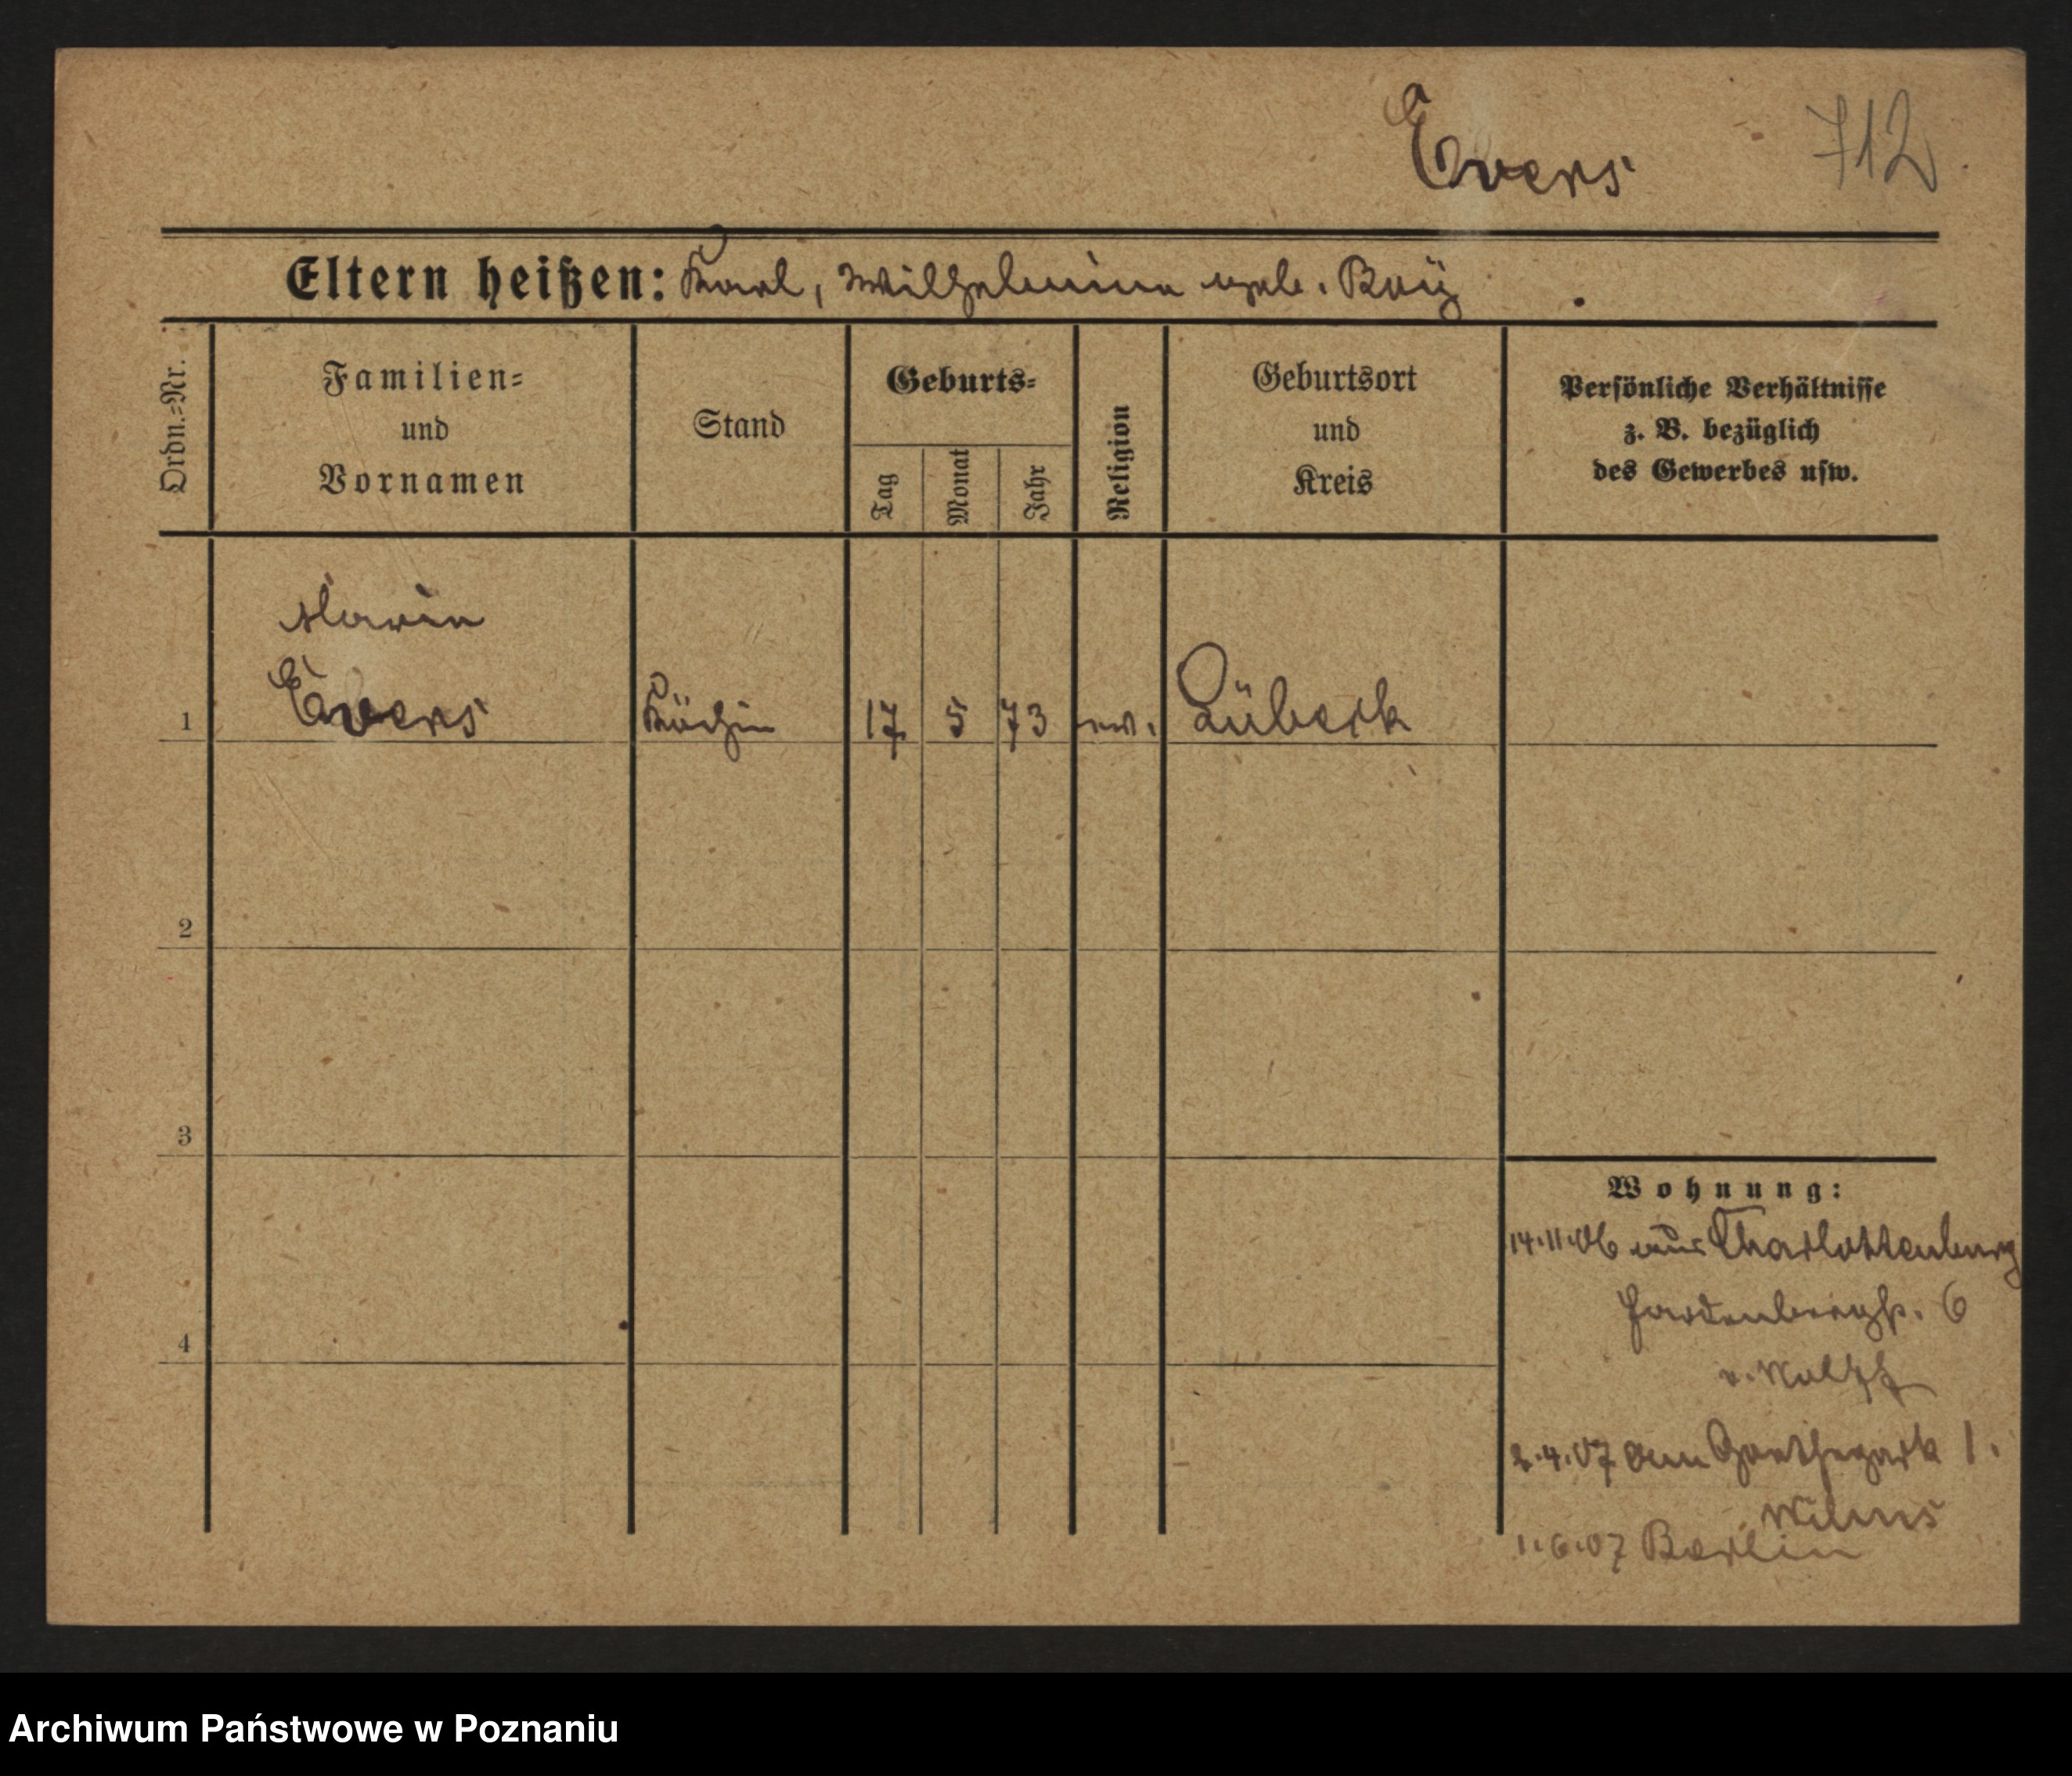 Evers
712
Eltern heißen: Karl, Wilhelmine geb. Boÿ
Ordn.-Nr.
Familien-
und
Vornamen
Stand
Geburts-
Tag
Monat
Jahr
Religion
Geburtsort
und
Kreis
Persönliche Verhältnisse
z. B. bezüglich
des Gewerbes usw.
Marie
1 Evers Köchin 17 5 73 ev. Lübeck
2
3
4
Wohnung:
14.11.06 aus Charlottenburg
Hardenbergstr. 6
v.
2.4.07 Am Goethepark 1.
Wilms
1.6.07 Berlin
Archiwum Państwowe w Poznaniu